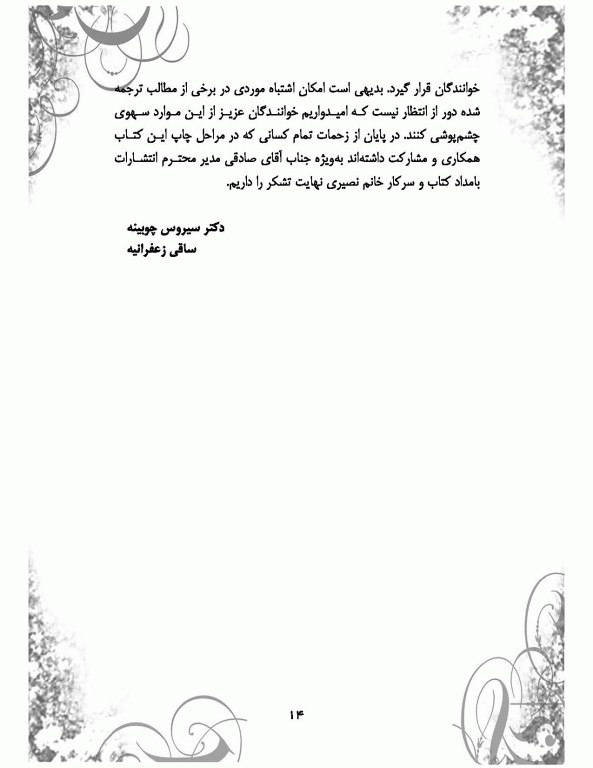 خوانندگان قرار گیرد. بدیهی است امکان اشتباه موردی در برخی از مطالب ترجمه
شده دور از انتظار نیست که امیدواریم خوانندگان عزیز از این موارد سهوی
چشم‌پوشی کنند. در پایان از زحمات تمام کسانی که در مراحل چاپ این کتاب
همکاری و مشارکت داشته‌اند به‌ویژه جناب آقای صادقی مدیر محترم انتشارات
بامداد کتاب و سرکار خانم نصیری نهایت تشکر را داریم.
دکتر سیروس چوبینه
ساقی زعفرانیه
۱۴